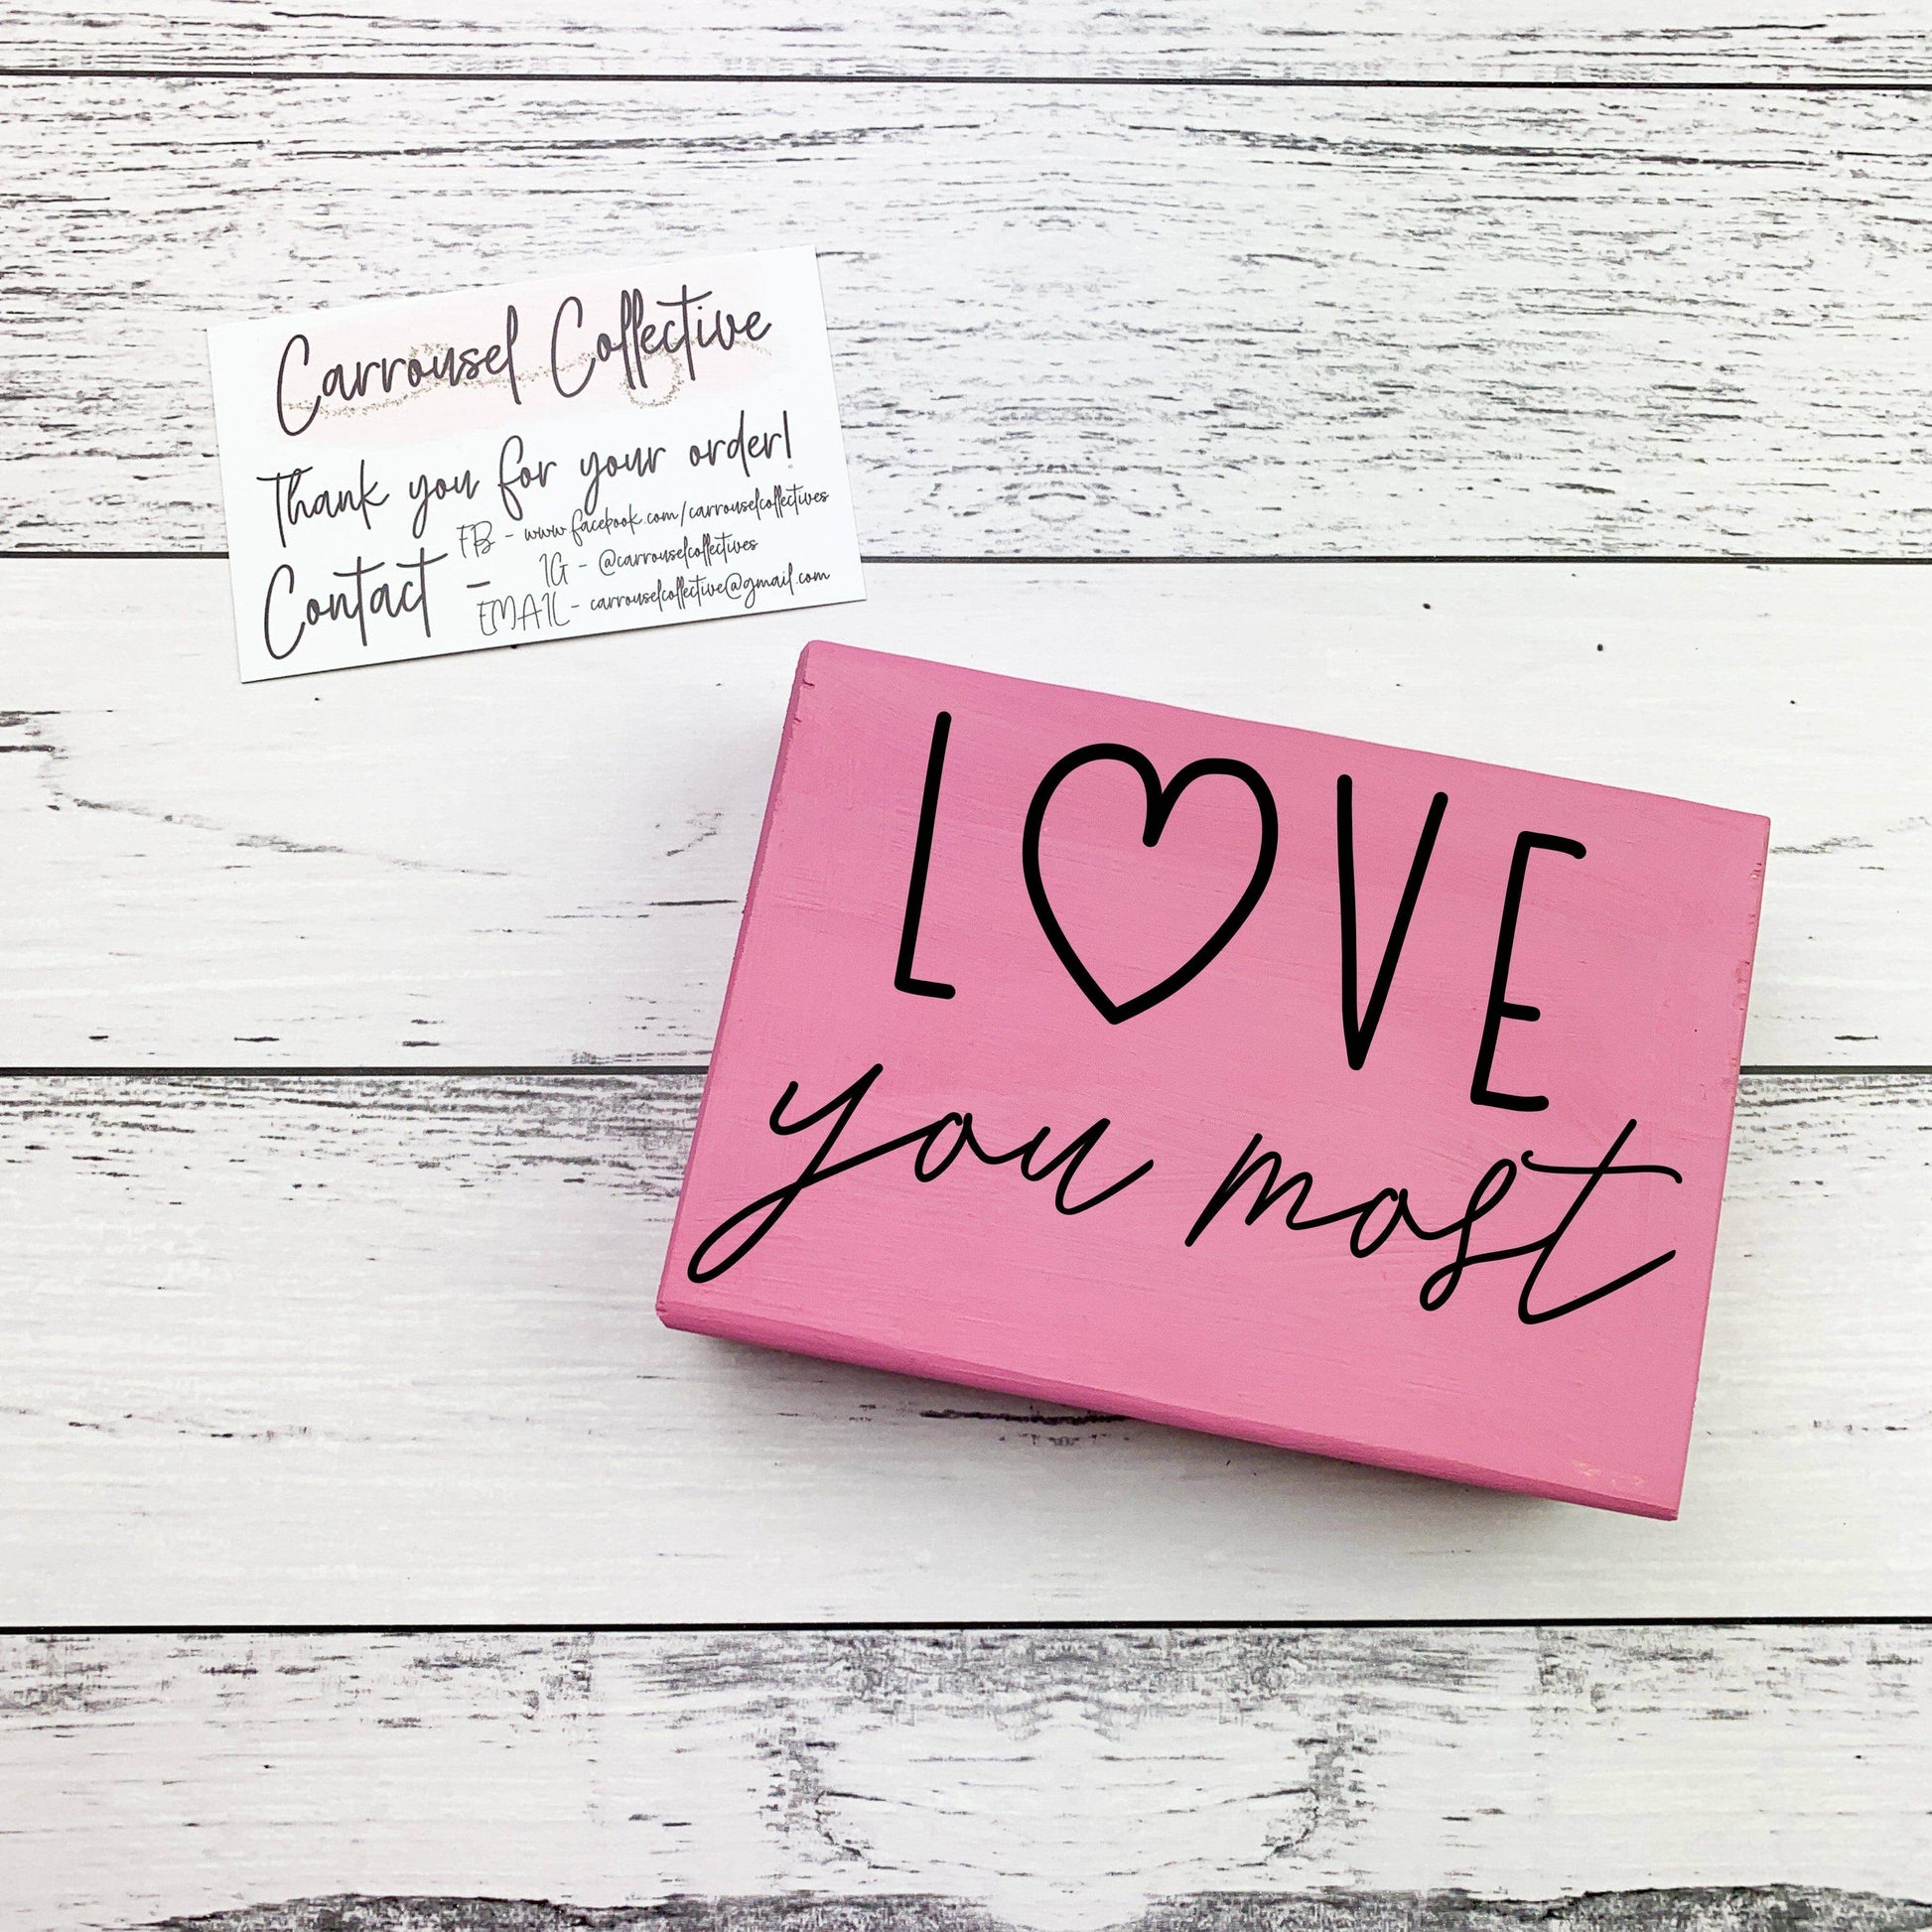 Carrousel Collective
Thank you for your order!
Contact -
FB - www.facebook.com/carrouselcollectives
IG - @carrouselcollectives
EMAIL - carrouselcollective@gmail.com
L♡VE
you most